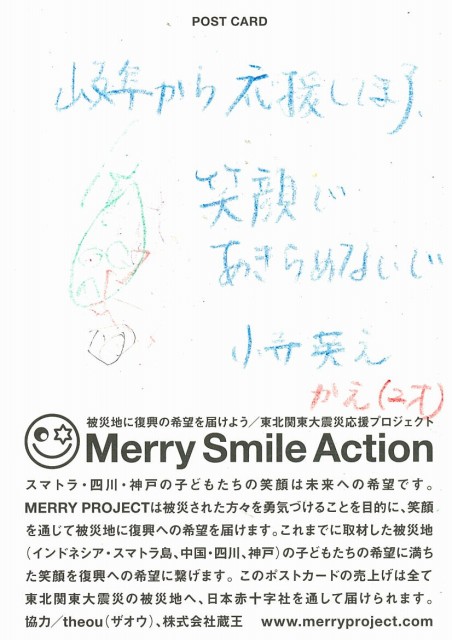 POST CARD
岐阜から応援しています
笑顔で
あきらめないで
小寺英え
かえ(2才)
被災地に復興の希望を届けよう/東北関東大震災応援プロジェクト
Merry Smile Action
スマトラ・四川・神戸の子どもたちの笑顔は未来への希望です。
MERRY PROJECTは被災された方々を勇気づけることを目的に、笑顔
を通じて被災地に復興への希望を届けます。これまでに取材した被災地
(インドネシア・スマトラ島、中国・四川、神戸)の子どもたちの希望に満ち
た笑顔を復興への希望に繋げます。このポストカードの売上げは全て
東北関東大震災の被災地へ、日本赤十字社を通して届けられます。
協力/theou(ザオウ)、株式会社蔵王 www.merryproject.com